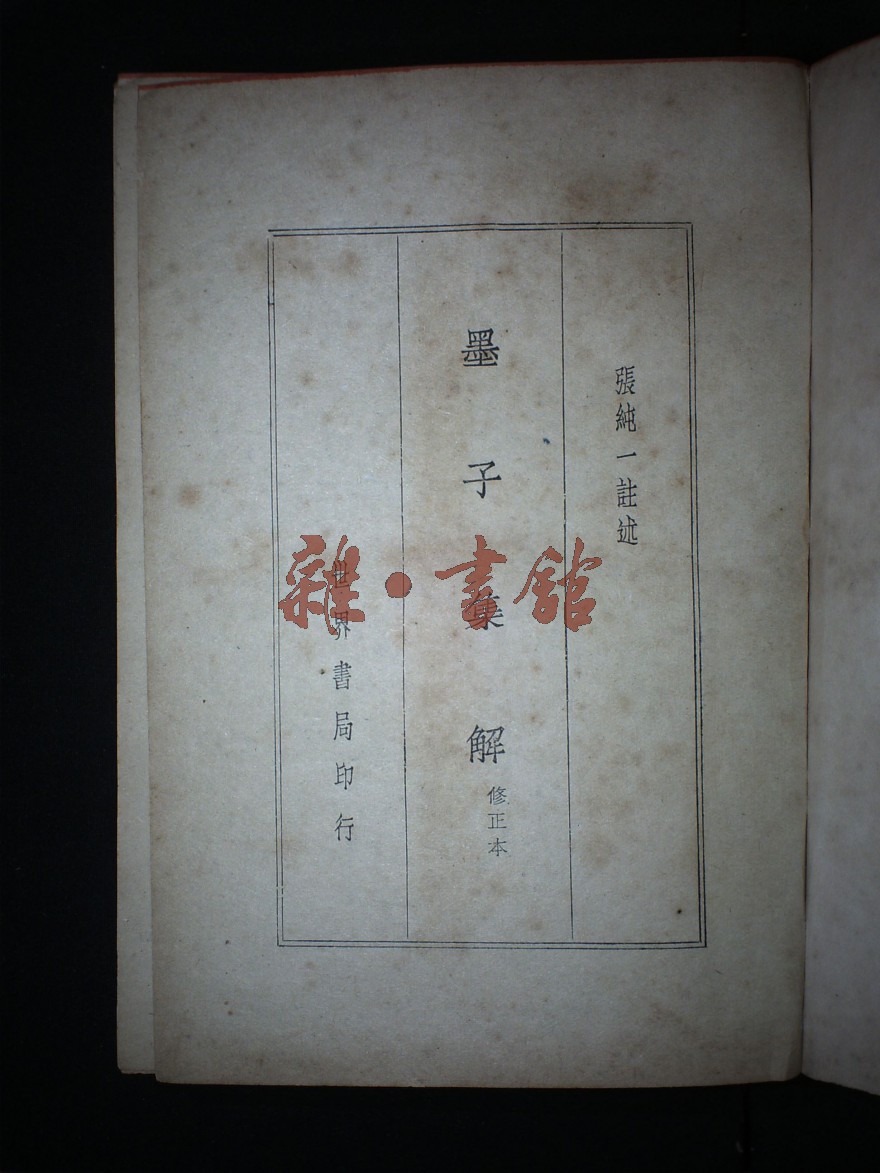 張純一註述
墨子集解
修正本
世界書局印行
雜·書館